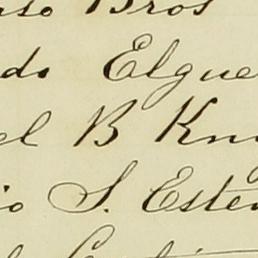 uso Bros
do Elgue
el B Kn
io S. Este